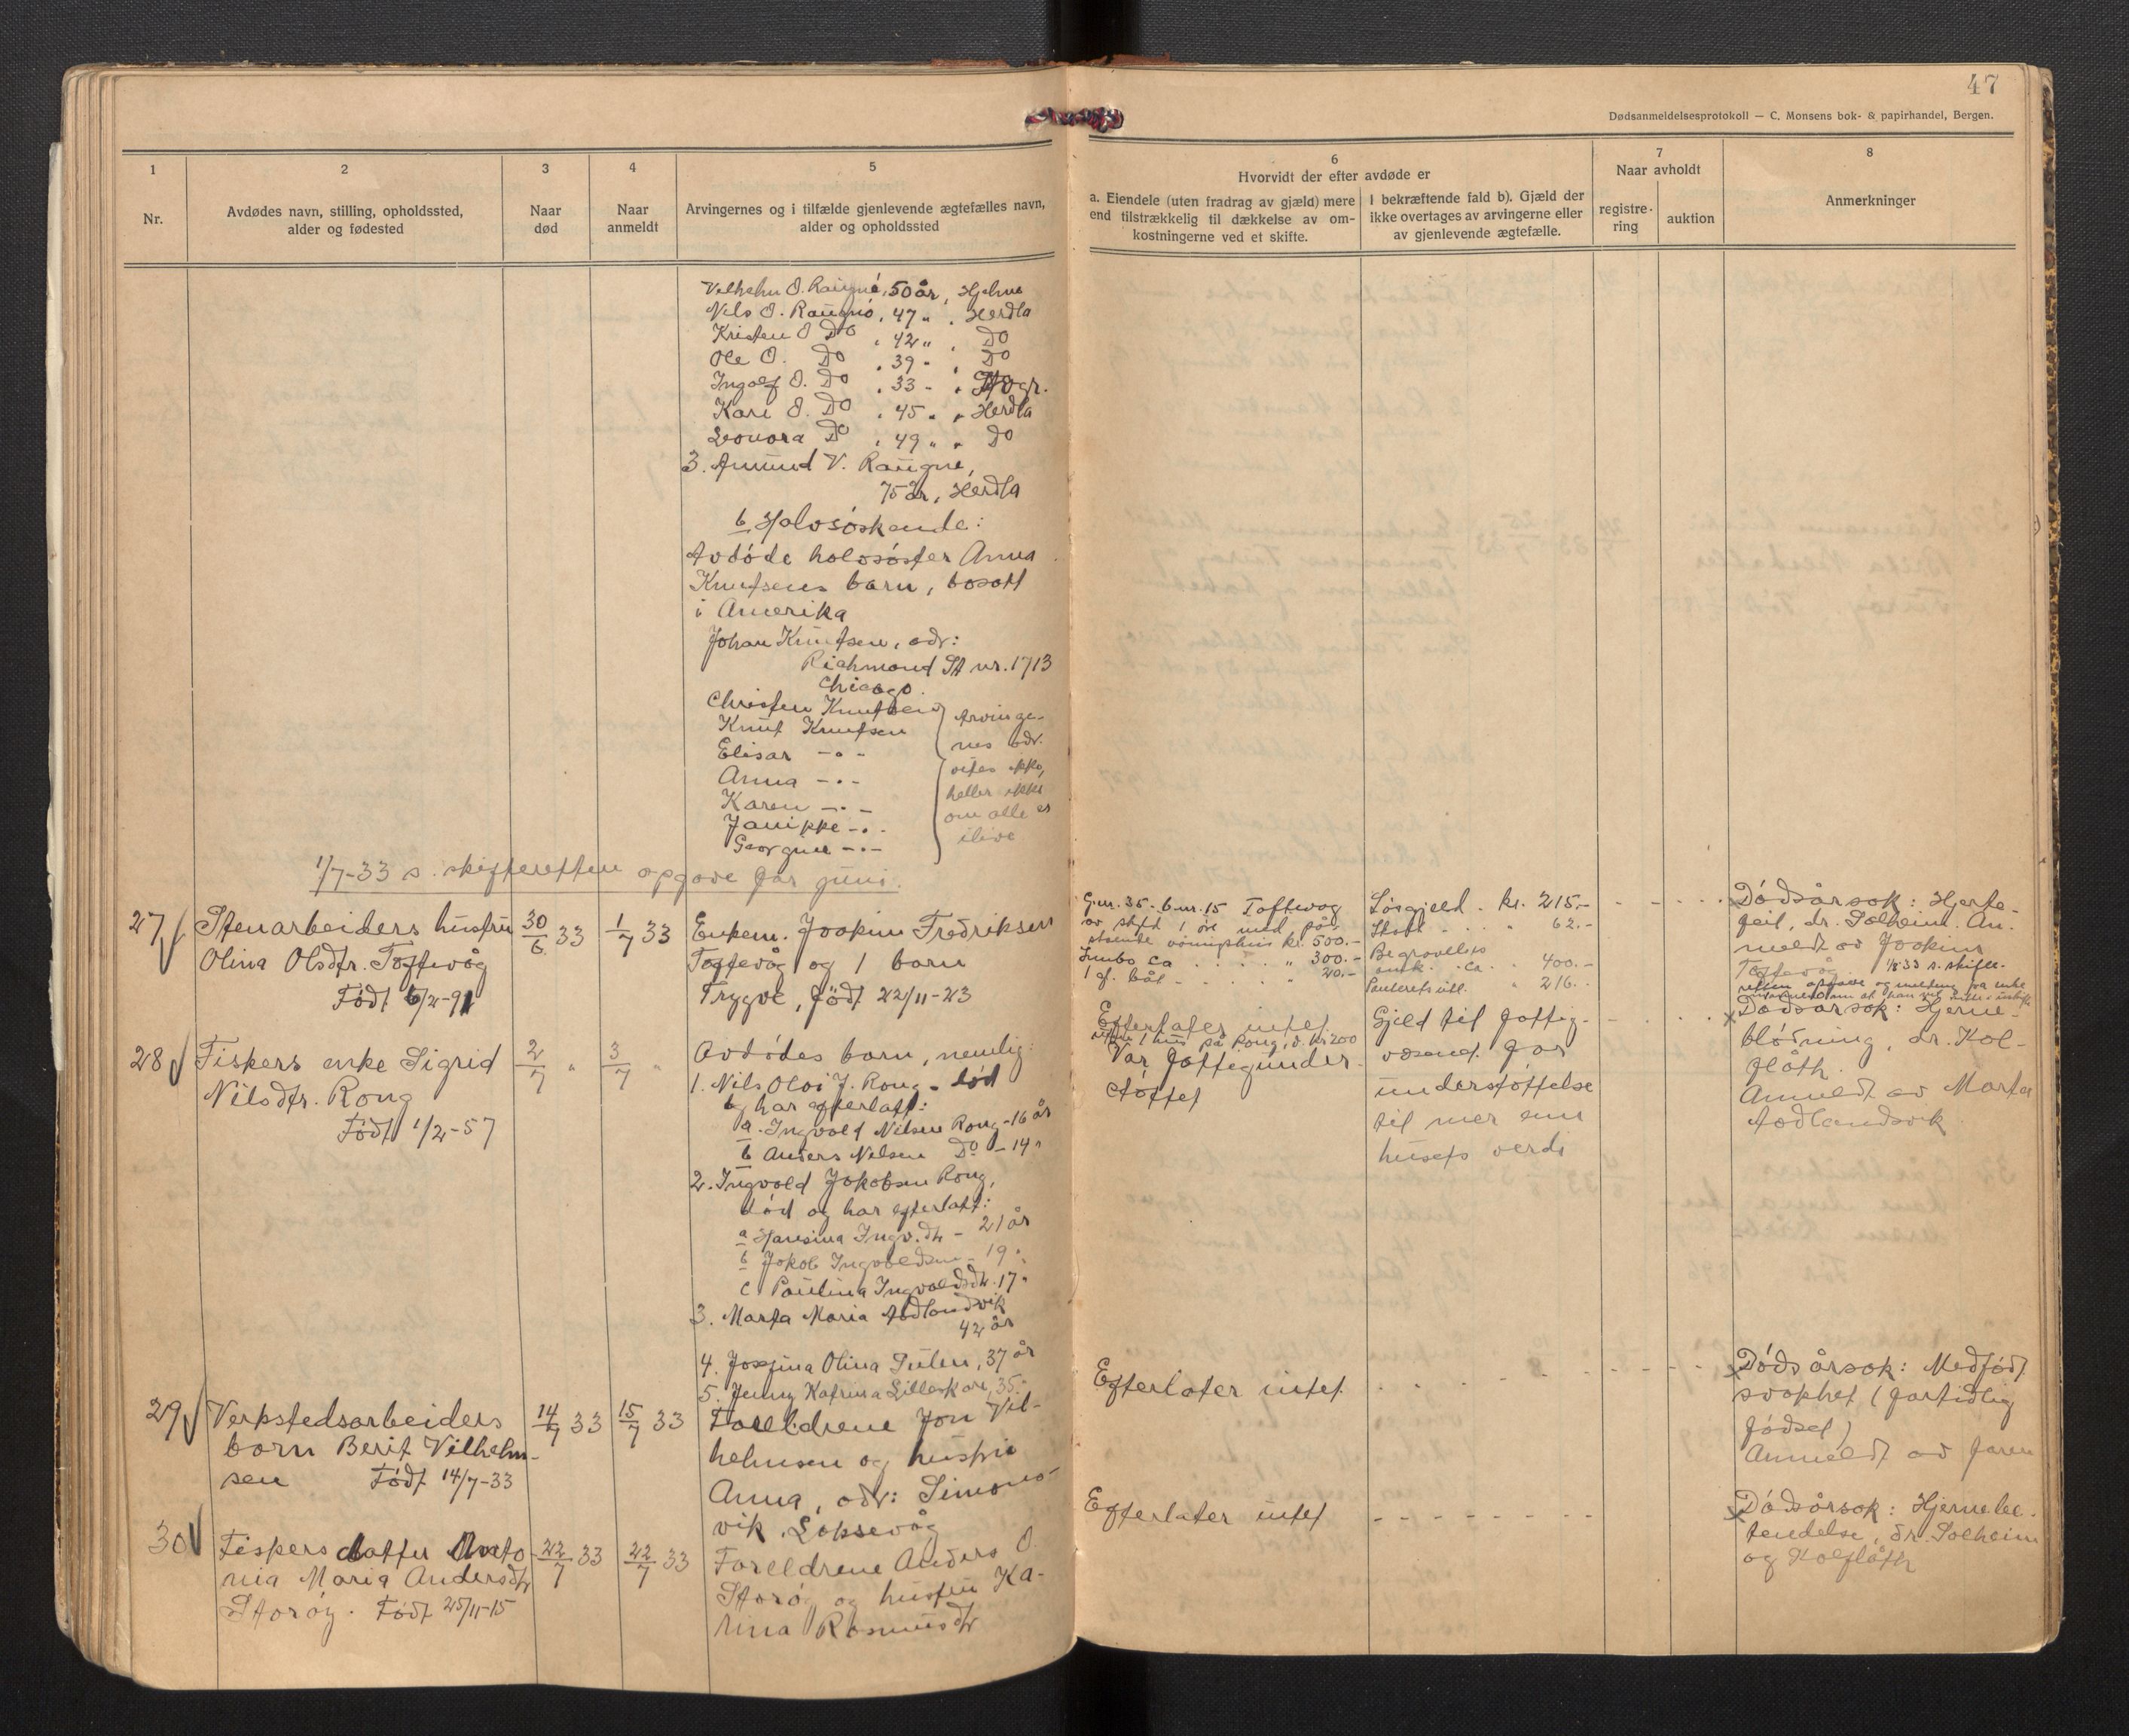 47
Dødsanmeldelsesprotokoll — C. Monsens bok- & papirhandel, Bergen.
1
Nr.
2
Avdødes navn, stilling, opholdssted,
alder og fødested
3
Naar
død
4
Naar
anmeldt
5
Arvingernes og i tilfælde gjenlevende ægtefælles navn,
alder og opholdssted
6
Hvorvidt der efter avdøde er
a. Eiendele (uten fradrag av gjæld) mere
end tilstrækkelig til dækkelse av om-
kostningerne ved et skifte.
I bekræftende fald b). Gjæld der
ikke overtages av arvingerne eller
av gjenlevende ægtefælle.
7
Naar avholdt
registre-
ring
auktion
8
Anmerkninger
O. 50 år, Hjelme
Nils O. 47 " , Herdla
Kristen O Do , 42 " , Do
Ole O. Do , 39 " , Do
Ingolf O. Do , 33 "
Kari O. Do , 45 " , Herdla
Leonora Do , 49 " , Do
3. Amund V.
75 år, Herdla
b Halvsøskende:
Avdøde halvsøster Anna
Knutsens barn, bosatt
i Amerika
Johan Knutsen, adr:
Richmond St nr. 1713
Chicago.
Christen Knutsen
Knut Knutsen
Elisar -"-
Anna -"-
Karen -"-
Janikke -"-
-"-
Arvinge-
nes adr.
vites ikke,
heller ikke
om alle er
ilive
1/7-33 s. skifteretten opgave for juni.
27
Stenarbeiders hustru
Olina Olsdtr. Toftevåg
Født 6/2-91
30/6 33
1/7 33
Enkem. Joakim Fredriksen
Toftevåg og 1 barn
Trygve, født 22/11-23
G.nr. 35 - b.nr. 15 Toftevag
av skyld 1 øre med på-
stående kr. 500.-
Innbo ca . . . . " 300.-
1 gl. båt - . . . " 20.-
Løsgjeld . kr. 215.-
Skatt - . . " 62.-
Begravelses
omk. ca. . 400.-
" 216..
Dødsårsak: Hjerte-
feil, dr. Solheim. An-
meldt av Joakim
Toftevåg. 1/8 33 s. skifte-
retten opgave og melding fra enke
28
Fiskers enke Sigrid
Nilsdtr. Rong
Født 1/2-57
2/7 "
3/7 "
Avdødes barn, nemlig:
1. Nils Olai J. Rong - død
og har efterlatt:
a. Ingvald Nilsen Rong - 16 år
b Anders Nilsen Do - 14 "
2. Ingvald Jakobsen Rong,
død og har efterlatt:
a Hansina Ingv.dtr - 21 år
b Jakob Ingvaldsen - 19 "
c Paulina Ingvaldsdtr. 17 "
3. Marta Maria Aadlandsvik
42 år
4. Josefina Olina 37 år
5. Jenny Katrina Lilleskare, 35 "
Efterlater intet
1 hus på Rong, v. kr 200
Var fattigunder-
støttet
Gjeld til fattig-
vesenet for
understøttelse
til mer enn
husets verdi
Dødsårsak: Hjerne-
blødning, dr. Kol-
flåth.
Anmeldt av Marta
Aadlandsvik
29
Verkstedsarbeiders
barn Berit Vilhelm-
sen Født 14/7-33
14/7 33
15/7 33
Foreldrene Jon Vil-
helmsen og hustru
Anna, adr: Simons-
vik, Loksevåg
Efterlater intet.
Dødsårsak: Medfødt
svakhet (fortidlig
fødsel)
Anmeldt av faren
30
Fiskers datter Anto-
nia Maria Andersdtr
Storøy. Født 25/11-15
22/7 33
22/7 33
Foreldrene Anders O.
Storøy og hustru Ka-
trina Rasmusdtr
Efterlater intet
Dødsårsak: Hjernebe-
tendelse, dr. Solheim
og Kolflåth